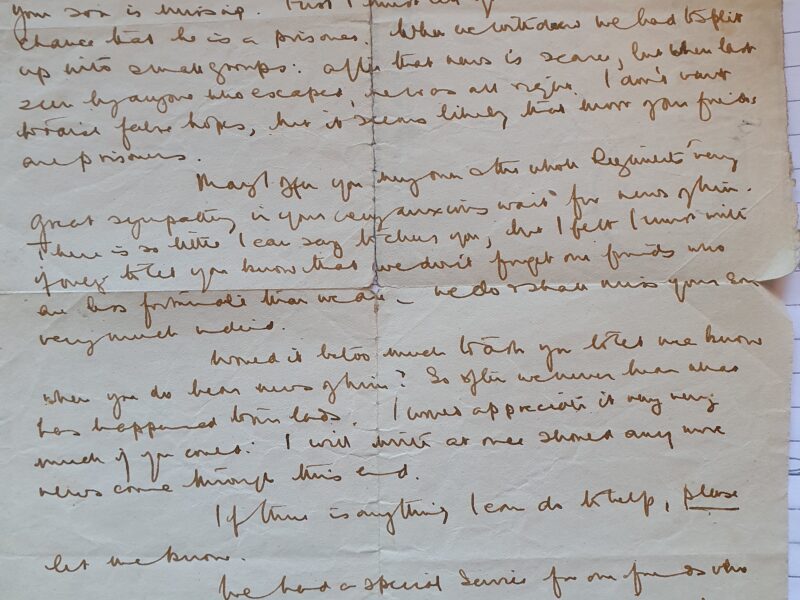 your son is missing. But I
chance that he is a prisoner. When we withdrew we had to split
up into small groups: after that news is scarce, but when last
seen by anyone who escaped, he was all right. I don't want
to raise false hopes, but it seems likely that most of your friends
are prisoners.
May I offer you my own & the whole Regiments' very
great sympathy in your very anxious wait for news of him.
There is so little I can say to cheer you, but I felt I must write
if only to let you know that we don't forget our friends who
are less fortunate than we are – we do & shall miss your son
very much indeed.
Would it be too much to ask you to let me know
when you do hear news of him? So often we never hear what
has happened to our lads. I would appreciate it very very
much if you could. I will write at once should any more
news come through this end.
If there is anything I can do to help, please
let me know.
We had a special Service for our friends who